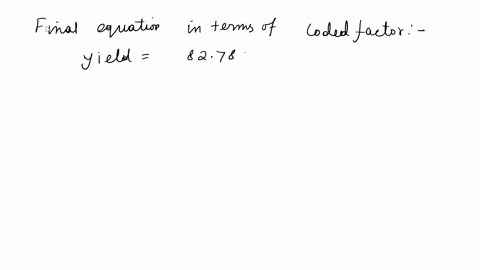 Final equation in terms of Coded factor:-
yield = 82.78